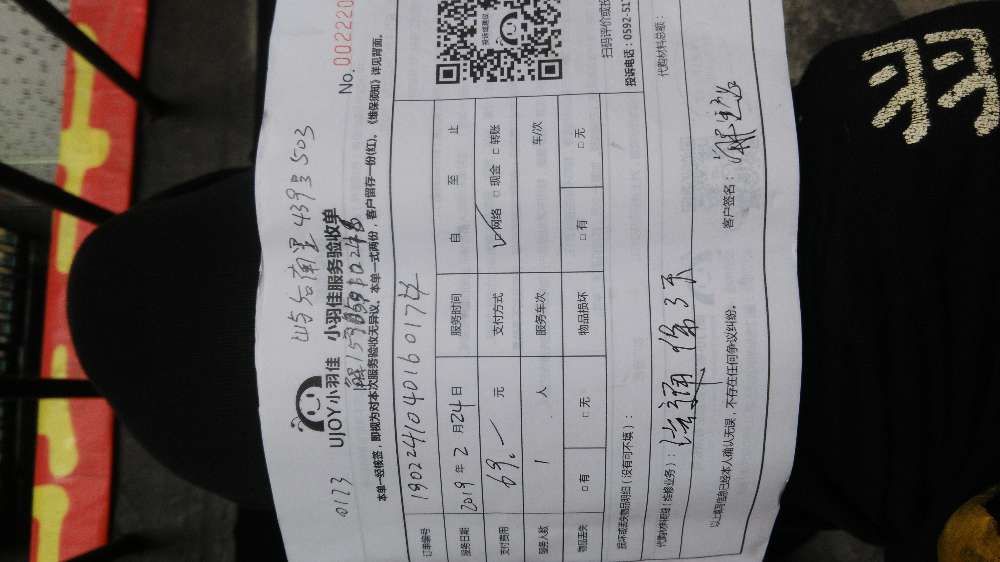 0123 岭后南里439号503
UJOY小羽佳 小羽佳服务验收单 No. 002220
本单一经核签，即视为对本次服务验收无异议。本单一式两份，客户留存一份(红)。《维保须知》详见背面。
订单编号 190224104016017
服务日期 2019年2月24日 服务时间 自 至 止
支付费用 69.— 元 支付方式 ☑网络 □现金 □转账
服务人数 1 人 服务车次 车/次
物品丢失 □有 □无 物品损坏 □有 □无
投诉或建议
扫码评价或投
投诉电话：0592-517
损坏或丢失物品明细（没有可不填）：
代购材料明细（维修业务）： 代购材料总额：
以上填写信息已经本人确认无误，不存在任何争议纠纷。 客户签名：
羽